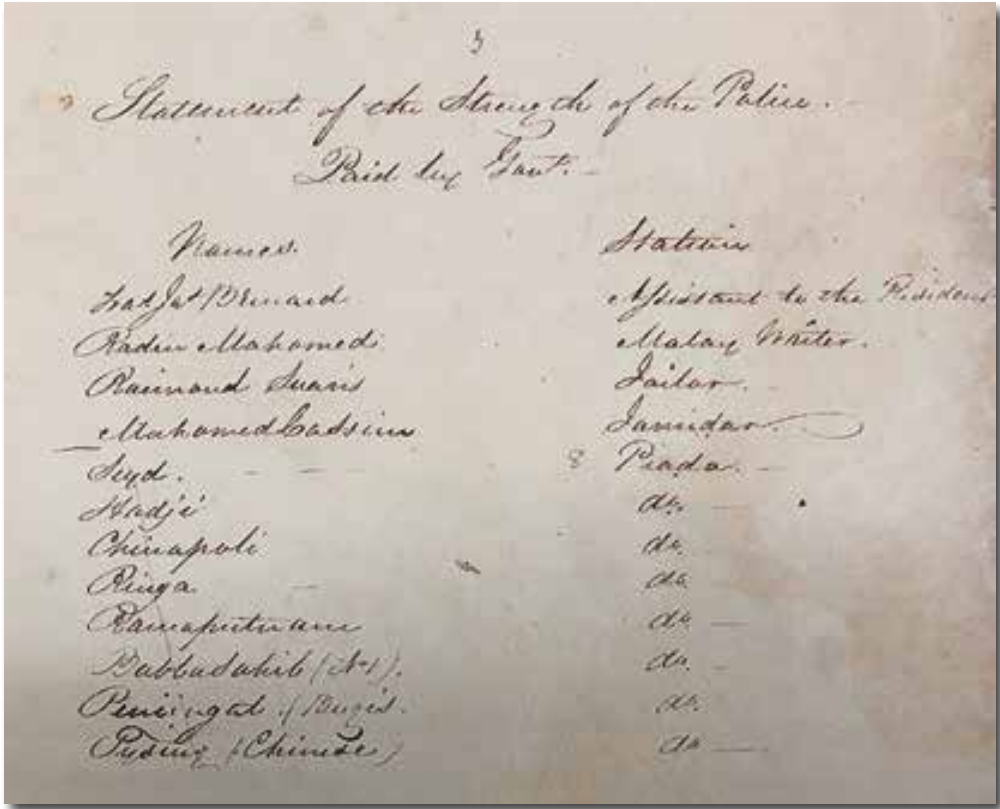 3
Statement of the Strength of the Police.
Paid by Govt. -
Names Stations
Bernard Assistant to the Resident
Radin Mahomed Malay Writer.
Raimond Suaris Jailor.
Mahomed Cassim Jamidar.
Seyd. - - - 8 Piada. -
Hadji do. -
Chinapoli do.
Ringa do -
Ramaputnam do -
Babbasahib (No 1). do. -
(Bugis. do.
(Chinese) do -